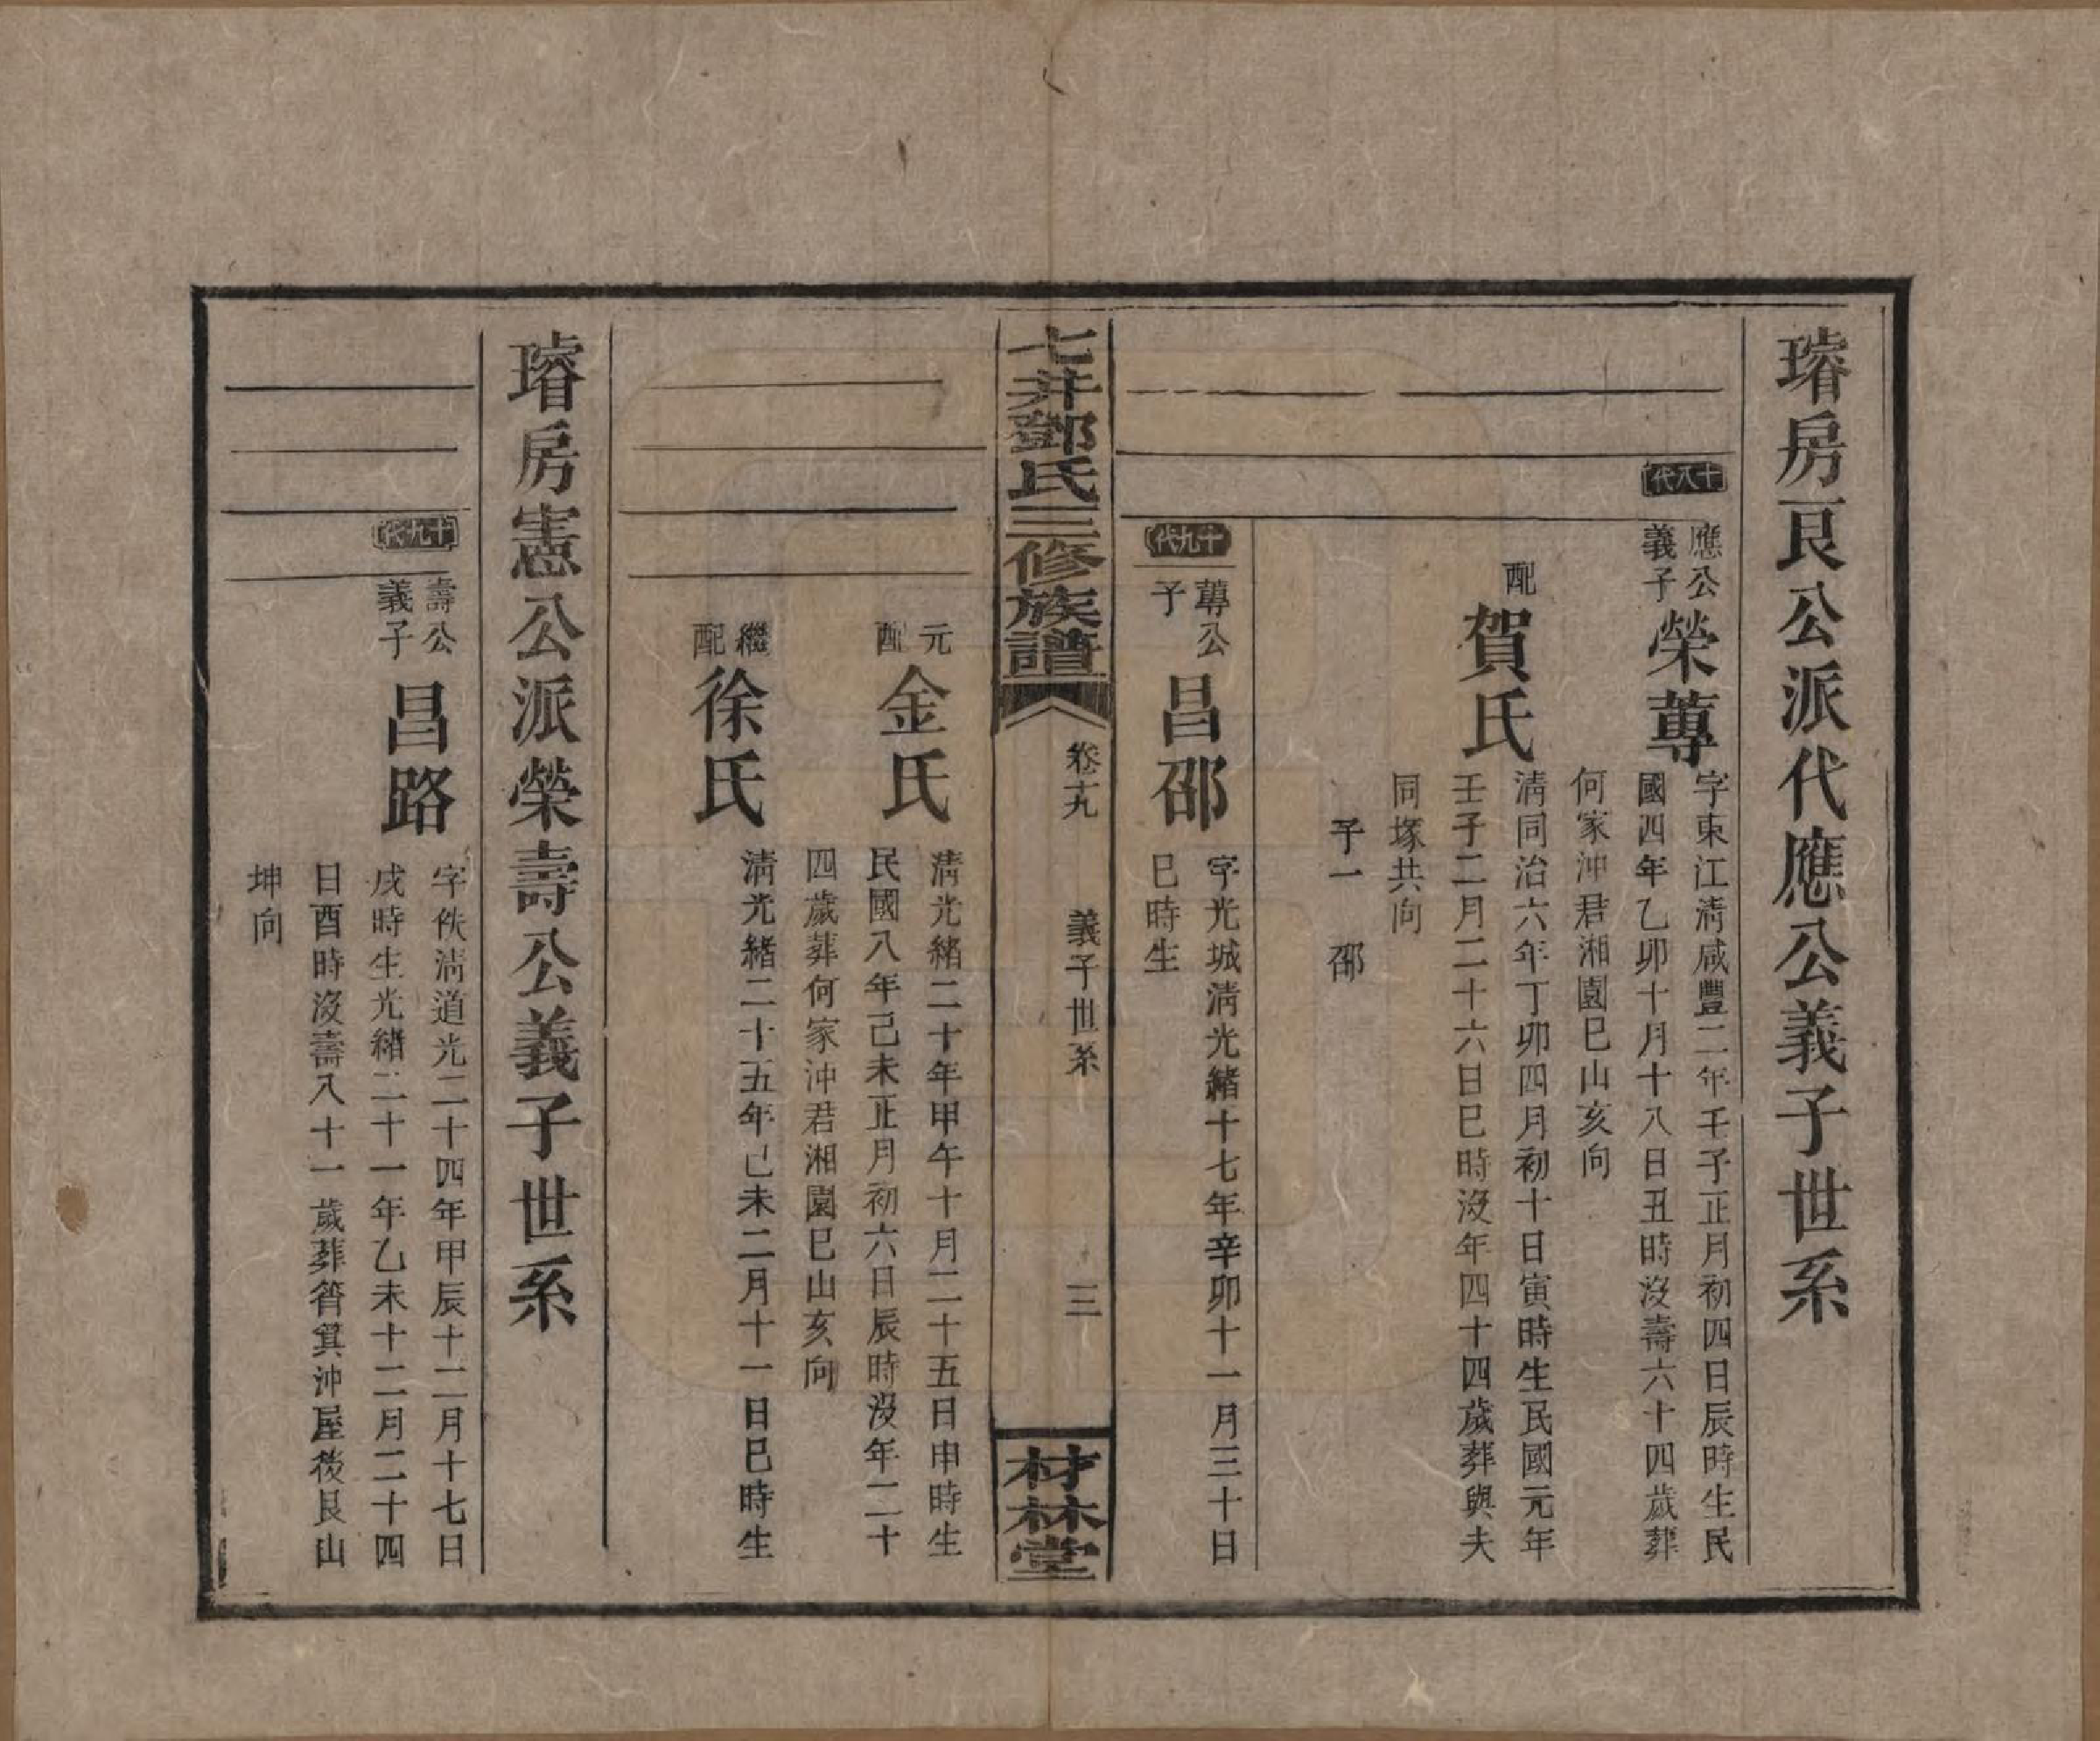 璿房良公派代應公義子世系
十八代
應公
義子
榮蓴
字東江淸咸豐二年壬子正月初四日辰時生民
國四年乙卯十月十八日丑時沒壽六十四歲葬
何家沖君湘園巳山亥向
配
賀氏
淸同治六年丁卯四月初十日寅時生民國元年
壬子二月二十六日巳時沒年四十四歲葬與夫
同塚共向
子一 邵
十九代
蓴公
子
昌邵
字光城淸光緒十七年辛卯十一月三十日
巳時生
七井鄧氏三修族譜
卷十九
義子世系
三
材林堂
元
配
金氏
淸光緒二十年甲午十月二十五日申時生
民國八年己未正月初六日辰時沒年二十
四歲葬何家沖君湘園巳山亥向
繼
配
徐氏
淸光緒二十五年己未二月十一日巳時生
璿房憲公派榮壽公義子世系
十九代
壽公
義子
昌路
字佚淸道光二十四年甲辰十二月十七日
戌時生光緒二十一年乙未十二月二十四
日酉時沒壽八十一歲葬筲箕沖屋後艮山
坤向